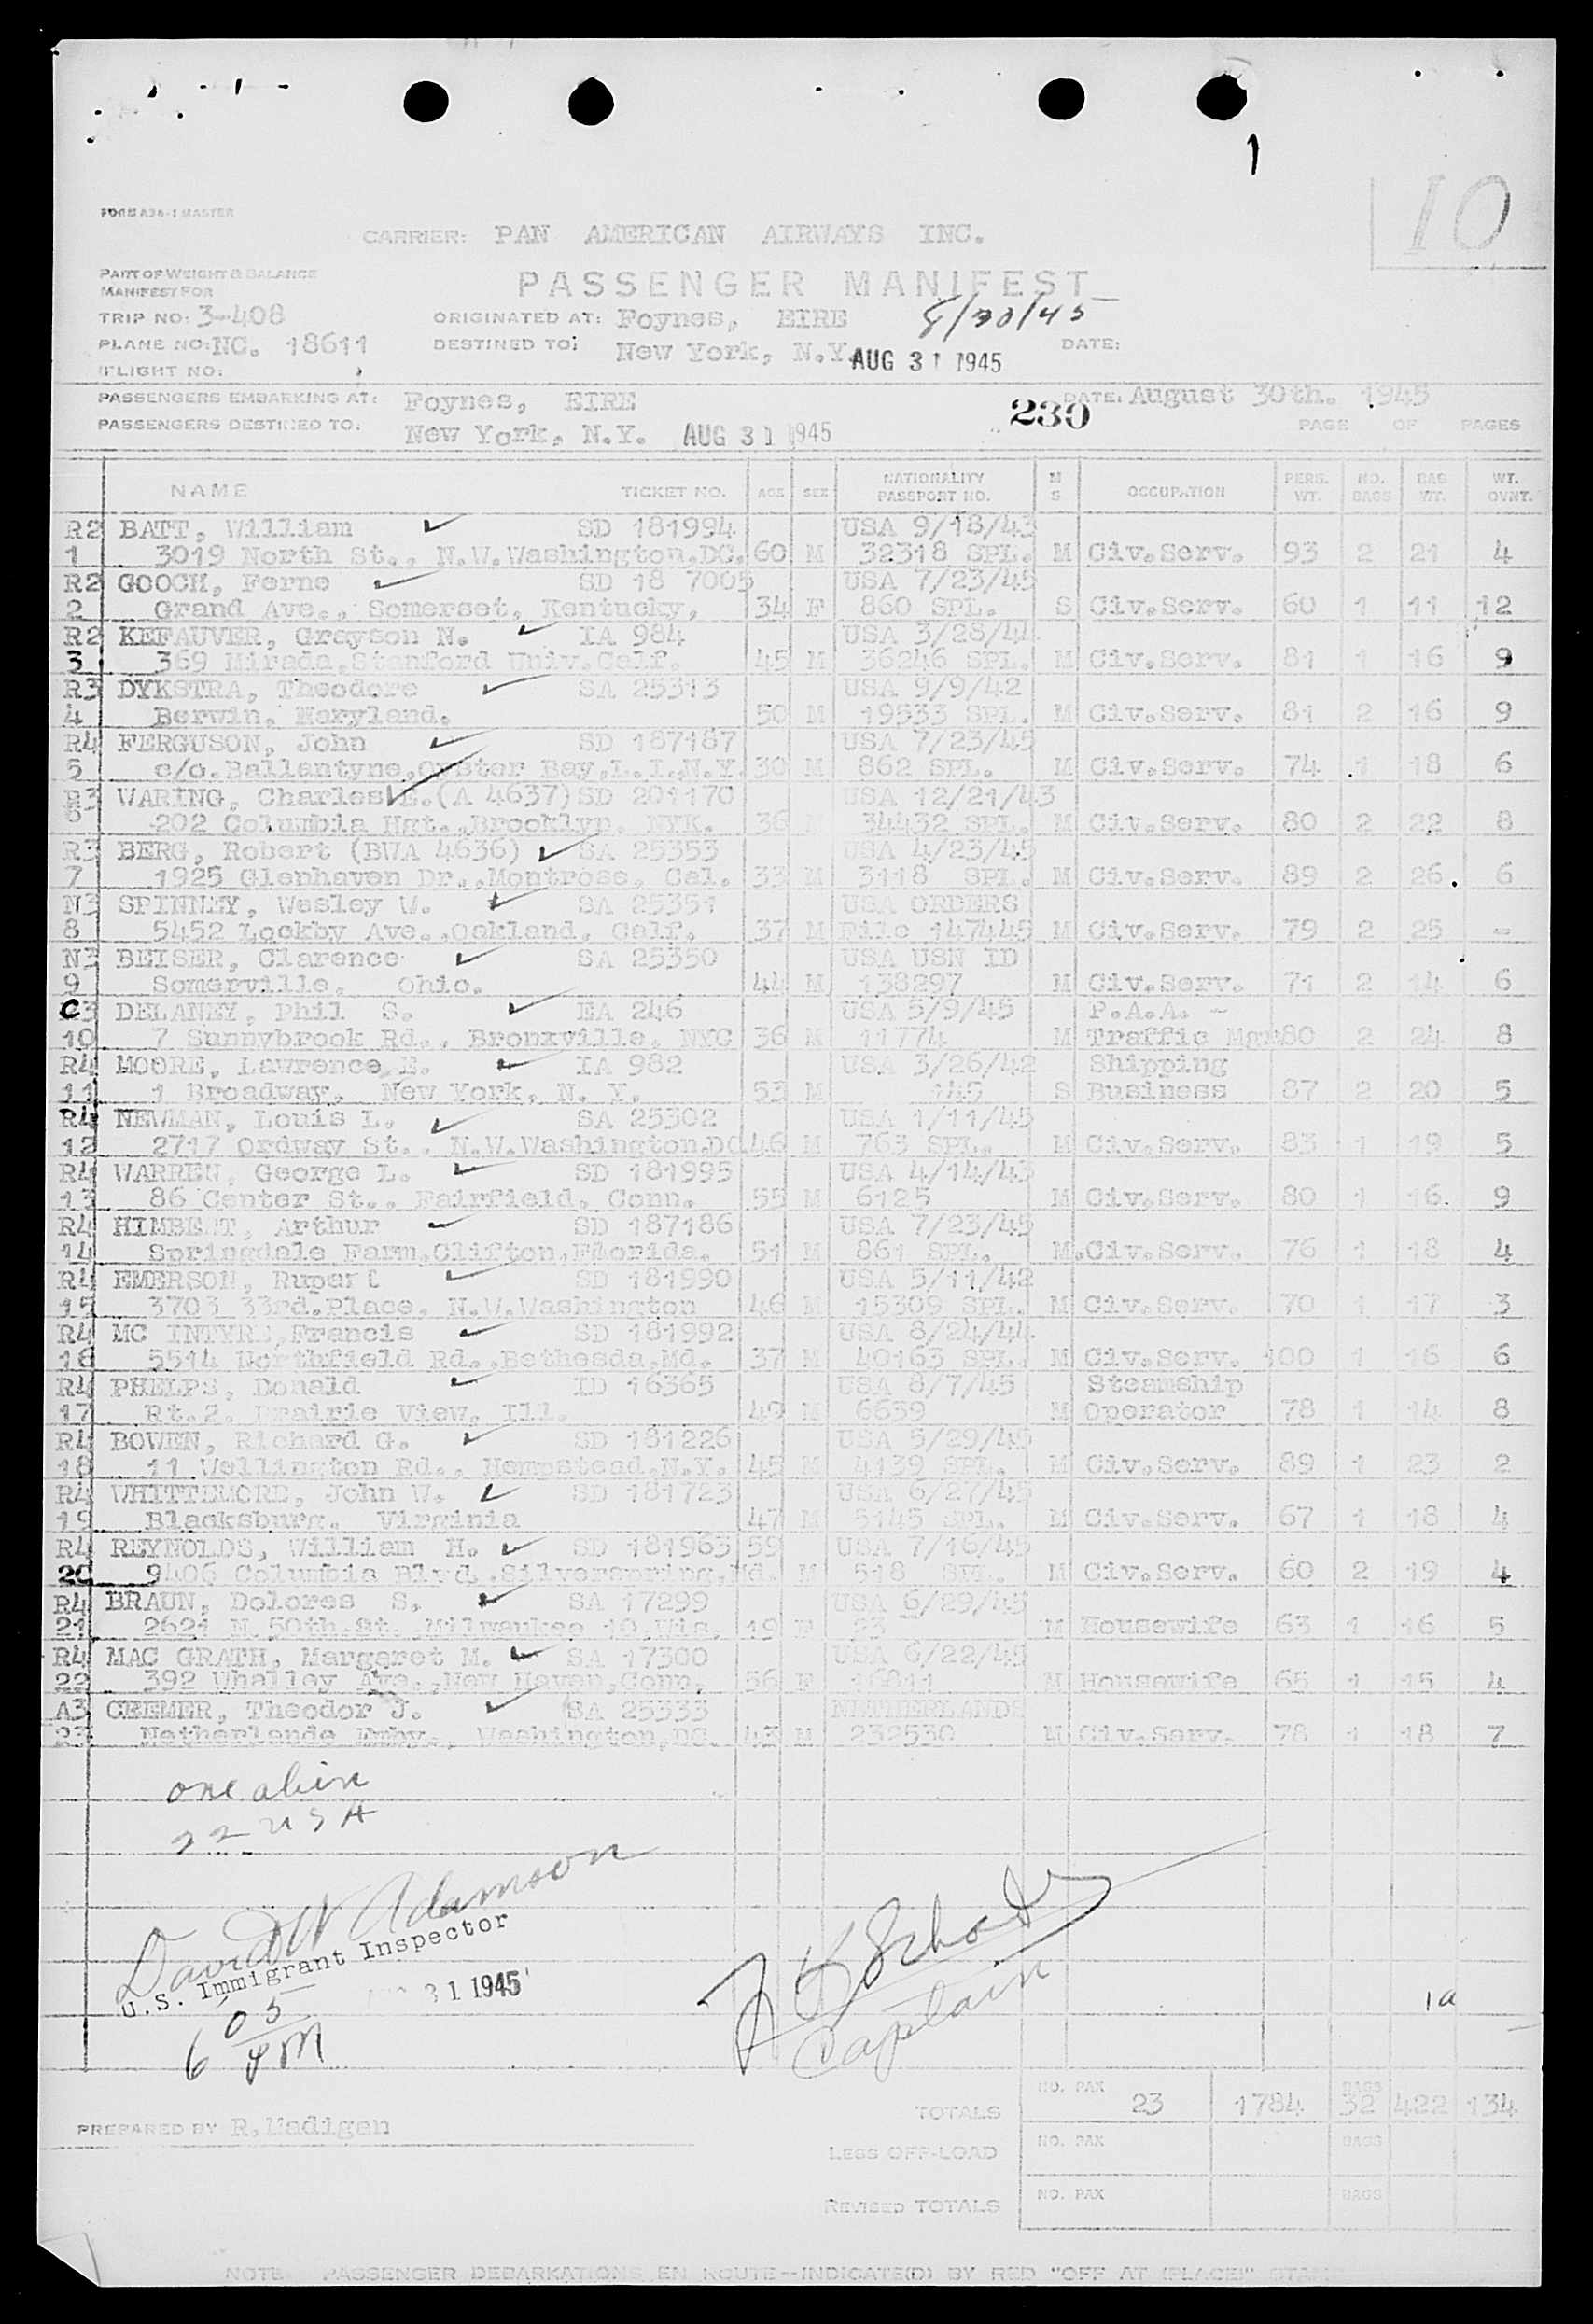 1
10
FORM A34-1 MASTER
CARRIER: PAN AMERICAN AIRWAYS INC.
PART OF WEIGHT & BALANCE
MANIFEST FOR
PASSENGER MANIFEST
TRIP NO: 3-408 ORIGINATED AT: Foynes, EIRE 8/30/45
PLANE NO: NC. 18611 DESTINED TO: New York, N.Y. AUG 31 1945 DATE:
FLIGHT NO:
PASSENGERS EMBARKING AT: Foynes, EIRE 239 DATE: August 30th. 1945
PASSENGERS DESTINED TO: New York, N.Y. AUG 31 1945 PAGE OF PAGES
NAME TICKET NO. AGE SEX NATIONALITY PASSPORT NO. M S OCCUPATION PERS. WT. NO. BAGS BAG WT. WT. OVWT.
R2 BATT, William SD 181994 USA 9/18/43
1 3019 North St., N.W.Washington,DC. 60 M 32318 SPL. M Civ.Serv. 93 2 21 4
R2 GOOCH, Ferne SD 18 7005 USA 7/23/45
2 Grand Ave., Somerset, Kentucky, 34 F 860 SPL. S Civ.Serv. 60 1 11 12
R2 KEFAUVER, Grayson N. IA 984 USA 3/28/44
3 369 Mirada,Stanford Univ.Calf. 45 M 36246 SPL. M Civ.Serv. 81 1 16 9
R3 DYKSTRA, Theodore SA 25313 USA 9/9/42
4 Berwin, Maryland. 50 M 19533 SPL. M Civ.Serv. 81 2 16 9
R4 FERGUSON, John SD 187187 USA 7/23/45
5 c/o.Ballantyne,Oyster Bay,L.I.,N.Y. 30 M 862 SPL. M Civ.Serv. 74 1 18 6
R3 WARING, Charles E.(A 4637) SD 201170 USA 12/21/43
6 202 Columbia Hgt.,Brooklyn, NYK. 36 M 34432 SPL. M Civ.Serv. 80 2 22 8
R3 BERG, Robert (BWA 4636) SA 25353 USA 4/23/45
7 1925 Glenhaven Dr.,Montrose, Cal. 33 M 3118 SPL. M Civ.Serv. 89 2 26 6
N3 SPINNEY, Wesley W. SA 25351 USA ORDERS
8 5452 Lockby Ave.,Oakland, Calf. 37 M File 147445 M Civ.Serv. 79 2 25 -
N3 BEISER, Clarence SA 25350 USA USN ID
9 Somerville, Ohio. 44 M 138297 M Civ.Serv. 71 2 14 6
C3 DELANEY, Phil S. EA 246 USA 5/9/45 P.A.A. -
10 7 Sunnybrook Rd., Bronxville, NYC 36 M 11774 M Traffic Mgr 80 2 24 8
R4 MOORE, Lawrence E. IA 982 USA 3/26/42 Shipping
11 1 Broadway, New York, N. Y. 53 M 145 S Business 87 2 20 5
R4 NEWMAN, Louis L. SA 25302 USA 1/11/45
12 2717 Ordway St., N.W.Washington,DC 46 M 763 SPL. M Civ.Serv. 83 1 19 5
R4 WARREN, George L. SD 181995 USA 4/14/43
13 86 Center St., Fairfield, Conn. 55 M 6125 M Civ.Serv. 80 1 16 9
R4 HIMBERT, Arthur SD 187186 USA 7/23/45
14 Springdale Farm,Clifton,Florida. 51 M 861 SPL. M Civ.Serv. 76 1 18 4
R4 EMERSON, Rupert SD 181990 USA 5/11/42
15 3703 33rd.Place, N.W.Washington 46 M 15309 SPL. M Civ.Serv. 70 1 17 3
R4 MC INTYRE,Francis SD 181992 USA 8/24/44
16 5514 Northfield Rd.,Bethesda,Md. 37 M 40163 SPL. M Civ.Serv. 100 1 16 6
R4 PHELPS, Donald ID 16365 USA 8/7/45 Steamship
17 Rt.2. Prairie View, Ill. 49 M 6639 M Operator 78 1 14 8
R4 BOWEN, Richard G. SD 181226 USA 5/29/45
18 11 Wellington Rd., Hempstead,N.Y. 45 M 4139 SPL. M Civ.Serv. 89 1 23 2
R4 WHITTEMORE, John W. SD 181723 USA 6/27/45
19 Blacksburg, Virginia 47 M 5145 SPL. M Civ.Serv. 67 1 18 4
R4 REYNOLDS, William H. SD 181963 59 USA 7/16/45
20 9406 Columbia Blvd.,Silverspring,Md. M 518 SPL. M Civ.Serv. 60 2 19 4
R4 BRAUN, Dolores S. SA 17299 USA 6/29/45
21 2621 N 50th.St.,Milwaukee 10,Wis. 19 F 23 M Housewife 63 1 16 5
R4 MAC GRATH, Margaret M. SA 17300 USA 6/22/45
22 392 Whalley Ave.,New Haven,Conn. 56 F 16811 M Housewife 65 1 15 4
A3 CREMER, Theodor J. SA 25333 NETHERLANDS
23 Netherlands Emby., Washington,DC. 43 M 232530 M Civ.Serv. 78 1 18 7
one alien
22 USA
David W Adamson
U.S. Immigrant Inspector
31 1945
6 05 PM
Captain
1a
TOTALS NO. PAX 23 1784 BAGS 32 422 134
PREPARED BY R.Madigan
LESS OFF-LOAD NO. PAX BAGS
REVISED TOTALS NO. PAX BAGS
NOTE: PASSENGER DEBARKATIONS EN ROUTE--INDICATE(D) BY RED "OFF AT (PLACE)" STAMP